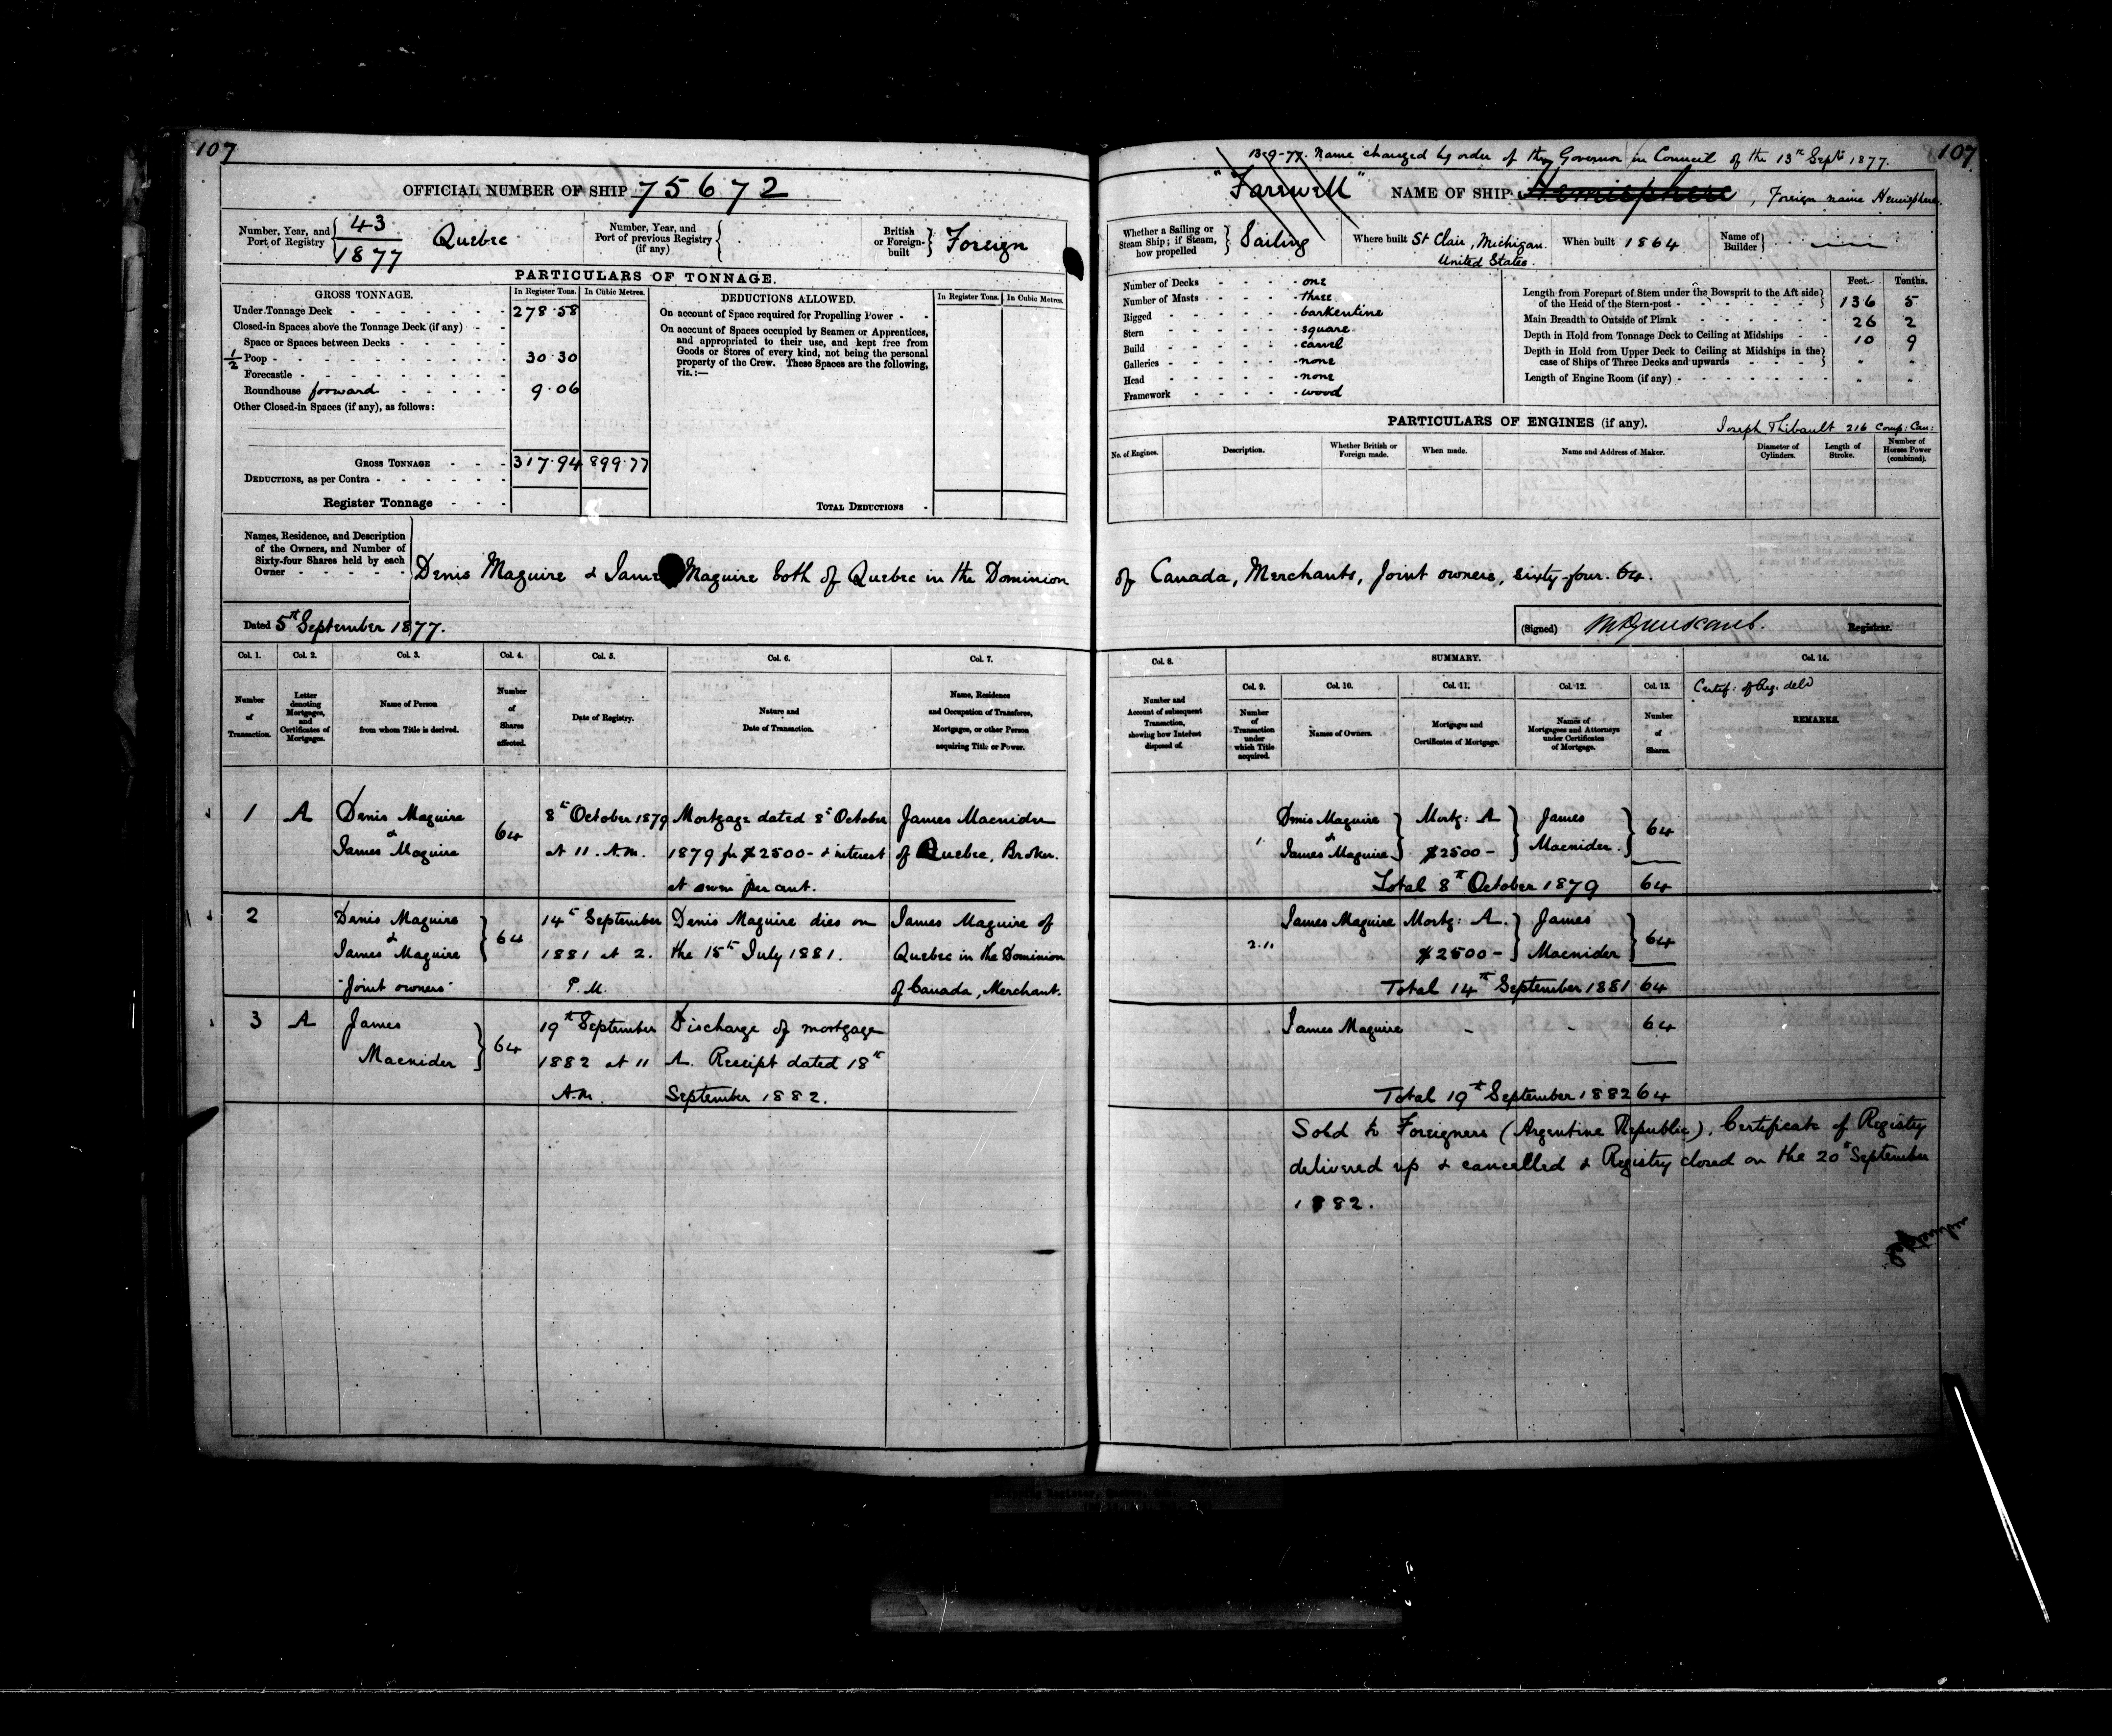 107
OFFICIAL NUMBER OF SHIP 75672
Number, Year, and Port of Registry { 43 / 1877 Quebec
Number, Year, and Port of previous Registry (if any) {
British or Foreign-built } Foreign
PARTICULARS OF TONNAGE.
GROSS TONNAGE. In Register Tons. In Cubic Metres.
Under Tonnage Deck 278.58
Closed-in Spaces above the Tonnage Deck (if any)
Space or Spaces between Decks
1/2 Poop 30.30
Forecastle
Roundhouse forward 9.06
Other Closed-in Spaces (if any), as follows:
GROSS TONNAGE 317.94 899.77
DEDUCTIONS, as per Contra
Register Tonnage
DEDUCTIONS ALLOWED. In Register Tons. In Cubic Metres.
On account of Space required for Propelling Power
On account of Spaces occupied by Seamen or Apprentices,
and appropriated to their use, and kept free from
Goods or Stores of every kind, not being the personal
property of the Crew. These Spaces are the following,
viz.:—
TOTAL DEDUCTIONS
107
13-9-77. Name changed by order of the Governor in Council of the 13th Septr 1877.
"Farewell" NAME OF SHIP Hemisphere, Foreign name Hemisphere.
Whether a Sailing or Steam Ship; if Steam, how propelled } Sailing
Where built St Clair, Michigan. United States.
When built 1864
Name of Builder }
Number of Decks one
Number of Masts three
Rigged barkentine
Stern square
Build carvel
Galleries none
Head none
Framework wood
Feet. Tenths.
Length from Forepart of Stem under the Bowsprit to the Aft side
of the Head of the Stern-post } 136 5
Main Breadth to Outside of Plank 26 2
Depth in Hold from Tonnage Deck to Ceiling at Midships 10 9
Depth in Hold from Upper Deck to Ceiling at Midships in the
case of Ships of Three Decks and upwards } " "
Length of Engine Room (if any) " "
PARTICULARS OF ENGINES (if any). Joseph Thibault 216 Comp: Can:
No. of Engines. Description. Whether British or Foreign made. When made. Name and Address of Maker. Diameter of Cylinders. Length of Stroke. Number of Horses Power (combined).
Names, Residence, and Description
of the Owners, and Number of
Sixty-four Shares held by each
Owner
Denis Maguire & James Maguire both of Quebec in the Dominion of Canada, Merchants, Joint owners, sixty-four. 64.
Dated 5th September 1877.
(Signed) Registrar.
Col. 1. Col. 2. Col. 3. Col. 4. Col. 5. Col. 6. Col. 7.
Number of Transaction.
Letter denoting Mortgages, and Certificates of Mortgages.
Name of Person from whom Title is derived.
Number of Shares affected.
Date of Registry.
Nature and Date of Transaction.
Name, Residence and Occupation of Transferee, Mortgagee, or other Person acquiring Title or Power.
Col. 8. SUMMARY. Col. 14.
Col. 9. Col. 10. Col. 11. Col. 12. Col. 13.
Number and Account of subsequent Transaction, showing how Interest disposed of.
Number of Transaction under which Title acquired.
Names of Owners.
Mortgages and Certificates of Mortgage.
Names of Mortgagees and Attorneys under Certificates of Mortgage.
Number of Shares.
Certif: of Reg. deld
REMARKS.
1 A Denis Maguire & James Maguire 64
8th October 1879 at 11. A.M.
Mortgage dated 8th October
1879 for $2500- & interest
at seven per cent.
James Macnider
of Quebec, Broker.
1. Denis Maguire & James Maguire } Mortg: A $2500- } James Macnider. } 64
Total 8th October 1879 64
2 Denis Maguire & James Maguire "Joint owners" } 64
14th September
1881 at 2.
P.M.
Denis Maguire dies on
the 15th July 1881.
James Maguire of
Quebec in the Dominion
of Canada, Merchant.
2. James Maguire Mortg: A. $2500- } James Macnider } 64
Total 14th September 1881 64
3 A James Macnider } 64
19th September
1882 at 11
A.M.
Discharge of mortgage
A. Receipt dated 18th
September 1882.
James Maguire - - 64
Total 19th September 1882 64
Sold to Foreigners (Argentine Republic), Certificate of Registry
delivered up & cancelled & Registry closed on the 20th September
1882.